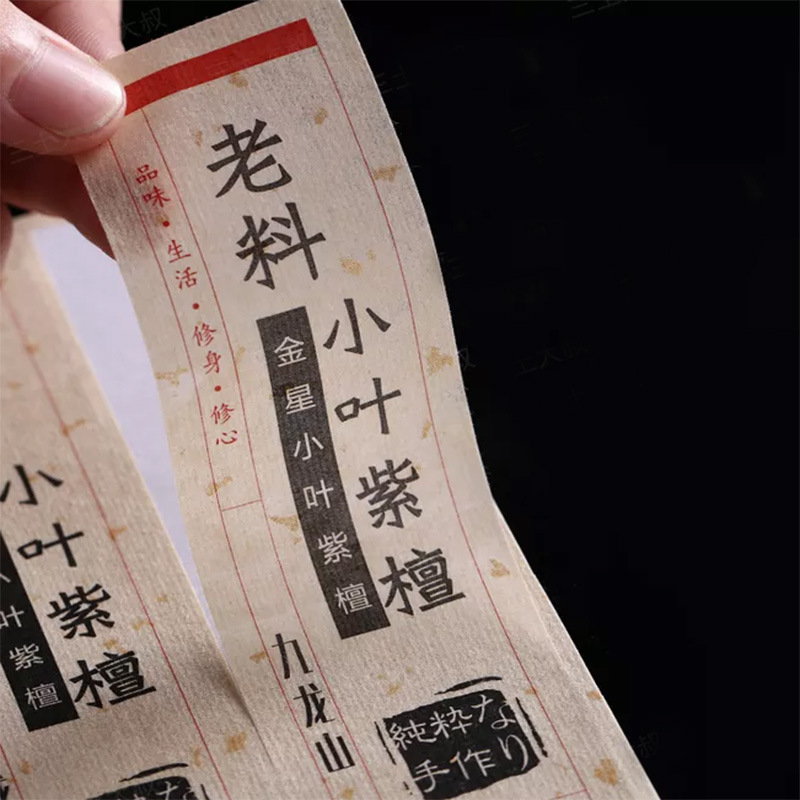 老料
小叶紫檀
金星小叶紫檀
品味·生活·修身·修心
九龙山
純粋な
手作り
小叶紫檀
叶紫檀
純粋な